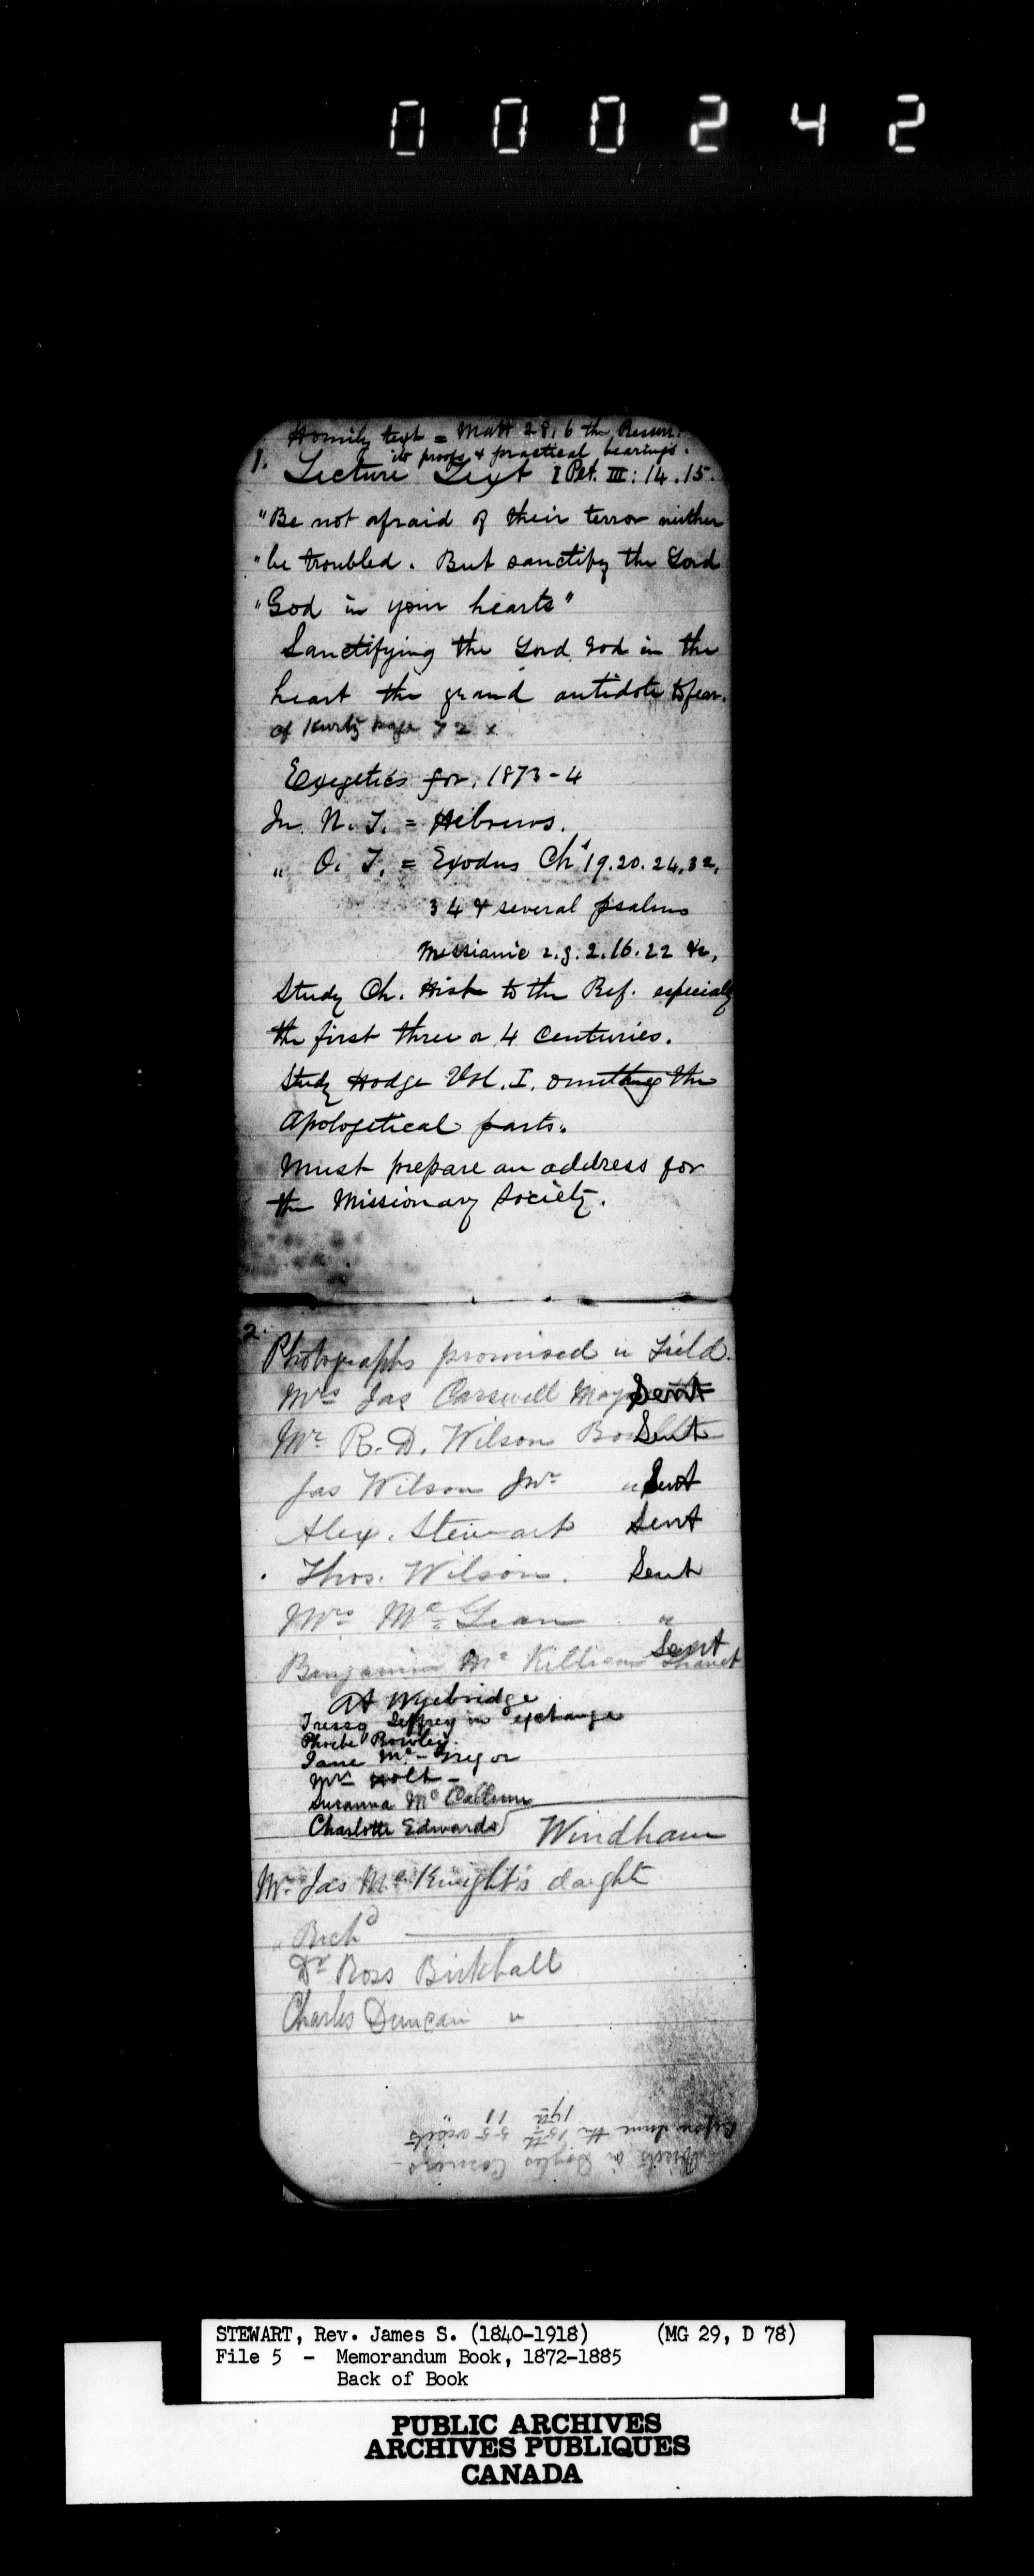 000242
Homily text = Matt 28, 6 the Resurr.
its proofs & practical bearings.
1. Lecture Text I Pet. III: 14.15.
"Be not afraid of their terror neither
"be troubled. But sanctify the Lord
"God in your hearts"
Sanctifying the Lord God in the
heart the grand antidote to fear.
of Kurtz page 72 x
Exegetics for, 1873-4
In N. T. = Hebrews.
" O. T. = Exodus Chs 19.20.24,32,
34 & several psalms
Messianic e.g. 2.16.22 &c,
Study Ch. Hist to the Ref. especially
the first three or 4 centuries.
Study Hodge Vol. I. omitting the
Apologetical parts.
Must prepare an address for
the Missionary Society.
2.
Photographs promised in Field.
Mrs Jas Carswell Sent
Mr R. D. Wilson Sent
Jas Wilson Jnr " Sent
Alex. Stewart Sent
Thos. Wilson. Sent
Mrs McLean "
Sent
Benjamin Mc
At Wyebridge
Jeffrey in exchange
Phoebe Rowley
Jane McGregor
Mrs Holt -
Susanna McCallum
Charlotte Edwards
Windham
Mr Jas McKnight's daght
" Richd
Dr Ross Birkhall
Charles Duncan "
Visits in Boyles Corners -
Before June the 15th 55 visits
19th 11 "
STEWART, Rev. James S. (1840-1918) (MG 29, D 78)
File 5 - Memorandum Book, 1872-1885
Back of Book
PUBLIC ARCHIVES
ARCHIVES PUBLIQUES
CANADA